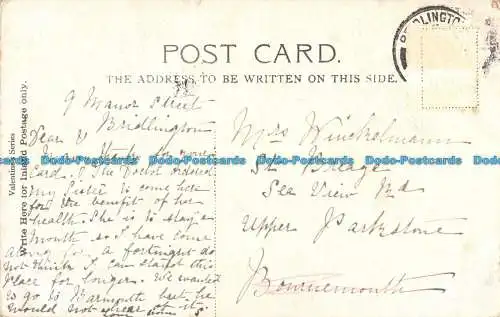 BRIDLINGTON
POST CARD.
THE ADDRESS TO BE WRITTEN ON THIS SIDE.
Valentines Series
Write Here for Inland Postage only.
9 Manor Street
Bridlington
Dear
Card. The Doctor ordered
my Sister to come here
for the benefit of her
health. She is to stay a
month so I have come
along for a fortnight do
not think I can stand this
place for longer. We wanted
to go to Yarmouth but he
would not hear of it.
Mrs Winckelmann
Sea View Rd
Upper Parkstone
Bournemouth
Dodo-Postcards Dodo-Postcards Dodo-Postcards Dodo-Postcards